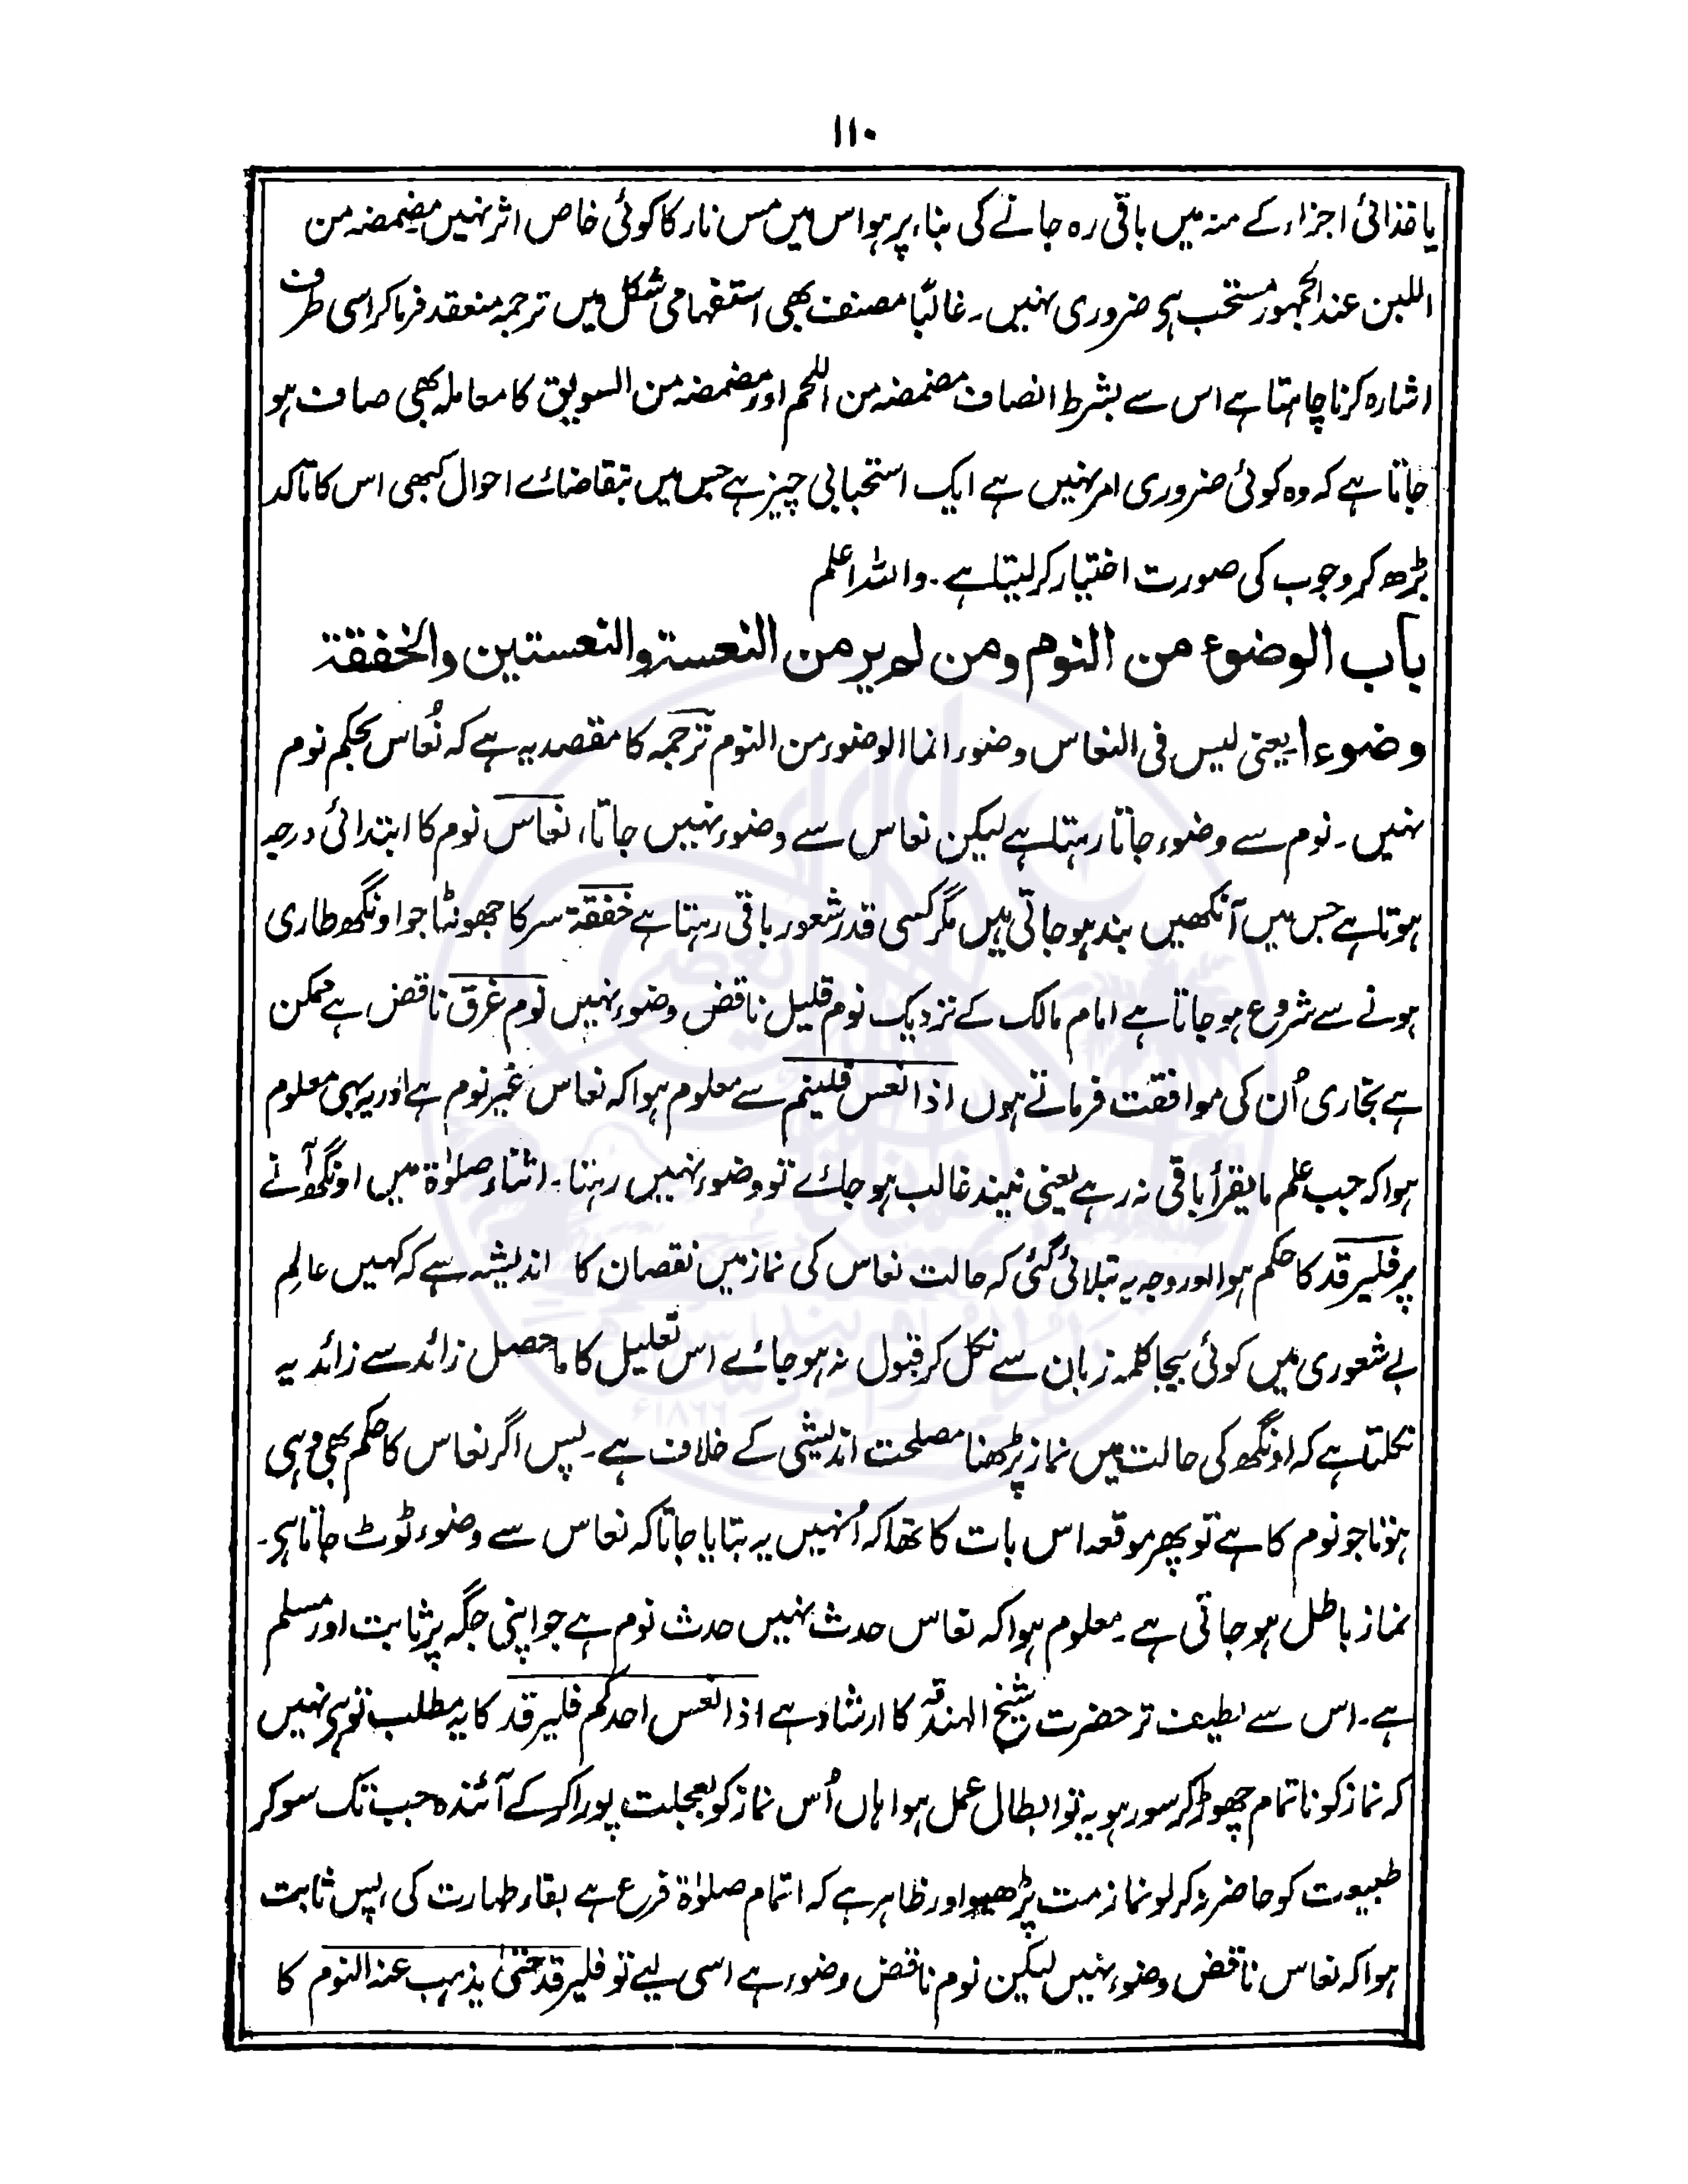 ۱۱۰
یا غذائی اجزاء کے منہ میں باقی رہ جانے کی بناء پر ہو اس میں مس نار کا کوئی خاص اثر نہیں مضمضہ من
اللبن عند الجمہور مستحب ہی ضروری نہیں۔ غالبًا مصنف بھی استفہامی شکل میں ترجمہ منعقد فرما کر اسی طرف
اشارہ کرنا چاہتا ہے اس سے بشرط انصاف مضمضہ من اللحم اور مضمضہ من السویق کا معاملہ بھی صاف ہو
جاتا ہے کہ وہ کوئی ضروری امر نہیں ہے ایک استحبابی چیز ہے جس میں بتقاضائے احوال کبھی اس کا تأکد
بڑھ کر وجوب کی صورت اختیار کر لیتا ہے۔ واللہ اعلم
باب الوضوء من النوم ومن لم یر من النعسۃ والنعستین والخفقۃ
وضوءا یعنی لیس فی النعاس وضوء انما الوضوء من النوم ترجمہ کا مقصد یہ ہے کہ نُعاس بحکم نوم
نہیں۔ نوم سے وضوء جاتا رہتا ہے لیکن نعاس سے وضوء نہیں جاتا، نعاس نوم کا ابتدائی درجہ
ہوتا ہے جس میں آنکھیں بند ہو جاتی ہیں مگر کسی قدر شعور باقی رہتا ہے خفقۃ سر کا جھونٹا جو اونگھ طاری
ہونے سے شروع ہو جاتا ہے امام مالک کے نزدیک نوم قلیل ناقض وضوء نہیں نوم غرق ناقض ہے ممکن
ہے بخاری اُن کی موافقت فرماتے ہوں اذا نعس فلینم سے معلوم ہوا کہ نعاس غیر نوم ہے اور یہ بھی معلوم
ہوا کہ جب علم ما یقرأ باقی نہ رہے یعنی نیند غالب ہو جائے تو وضوء نہیں رہتا۔ اثناء صلوٰۃ میں اونگھ آنے
پر فلیرقد کا حکم ہوا اور وجہ یہ بتلائی گئی کہ حالت نعاس کی نماز میں نقصان کا اندیشہ ہے کہ کہیں عالمِ
بے شعوری میں کوئی بیجا کلمہ زبان سے نکل کر قبول نہ ہو جائے اس تعلیل کا ماحصل زائد سے زائد یہ
نکلتا ہے کہ اونگھ کی حالت میں نماز پڑھنا مصلحت اندیشی کے خلاف ہے۔ پس اگر نعاس کا حکم بھی وہی
ہوتا جو نوم کا ہے تو پھر موقعہ اس بات کا تھا کہ اُنہیں یہ بتایا جاتا کہ نعاس سے وضوء ٹوٹ جاتا ہی۔
نماز باطل ہو جاتی ہے۔ معلوم ہوا کہ نعاس حدث نہیں حدث نوم ہے جو اپنی جگہ پر ثابت اور مسلم
ہے۔ اس سے لطیف تر حضرت شیخ الہندؒ کا ارشاد ہے اذا نعس احدکم فلیرقد کا یہ مطلب تو ہی نہیں
کہ نماز کو ناتمام چھوڑ کر سو رہو یہ تو ابطال عمل ہوا ہاں اُس نماز کو بعجلت پورا کر کے آئندہ جب تک سو کر
طبیعت کو حاضر نہ کر لو نماز مت پڑھیو اور ظاہر ہے کہ اتمام صلوٰۃ فرع ہے بقاء طہارت کی، پس ثابت
ہوا کہ نعاس ناقض وضوء نہیں لیکن نوم ناقض وضوء ہے اسی لیے تو فلیرقد حتیٰ یذہب عنہ النوم کا